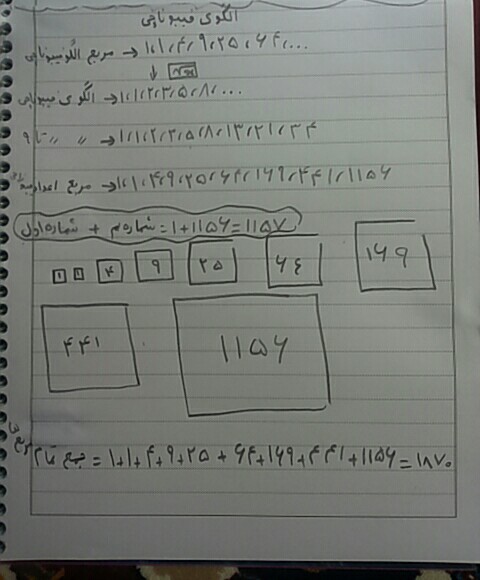 الگوی فیبوناچی
مربع الگوی فیبوناچی → ۱،۱،۴،۹،۲۵،۶۴،...
الگوی فیبوناچی → ۱،۱،۲،۳،۵،۸،...
〃 〃 تا ۹ → ۱،۱،۲،۳،۵،۸،۱۳،۲۱،۳۴
مربع اعداد → ۱،۱،۴،۹،۲۵،۶۴،۱۶۹،۴۴۱،۱۱۵۶
شماره اول + شماره ۹ = ۱+۱۱۵۶=۱۱۵۷
۱ ۱ ۴ ۹ ۲۵ ۶۴ ۱۶۹
۴۴۱ ۱۱۵۶
جمع تمام مربع ها = ۱+۱+۴+۹+۲۵+۶۴+۱۶۹+۴۴۱+۱۱۵۶=۱۸۷۰